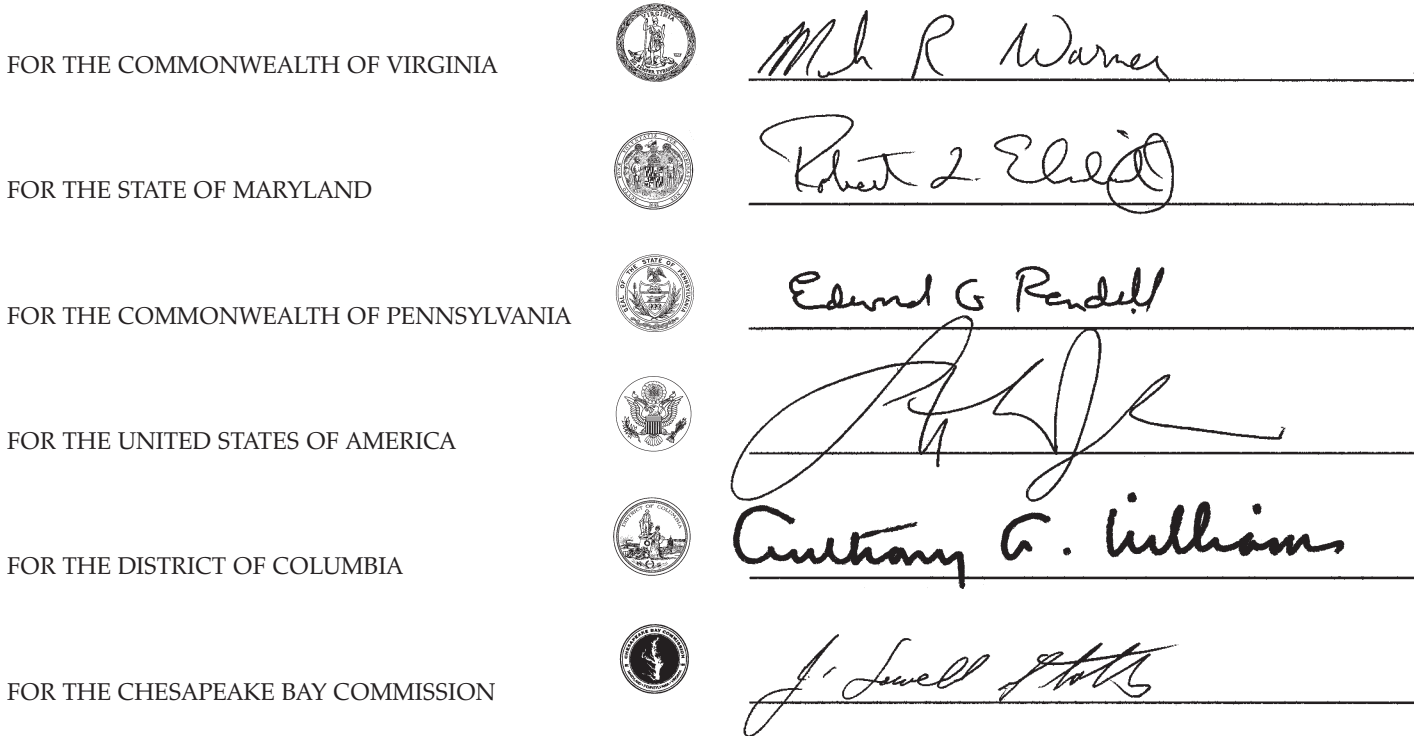 FOR THE COMMONWEALTH OF VIRGINIA Mark R Warner
FOR THE STATE OF MARYLAND Robert L. Ehrlich
FOR THE COMMONWEALTH OF PENNSYLVANIA Edward G Rendell
FOR THE UNITED STATES OF AMERICA
FOR THE DISTRICT OF COLUMBIA Anthony A. Williams
FOR THE CHESAPEAKE BAY COMMISSION J. Lowell Stoltz